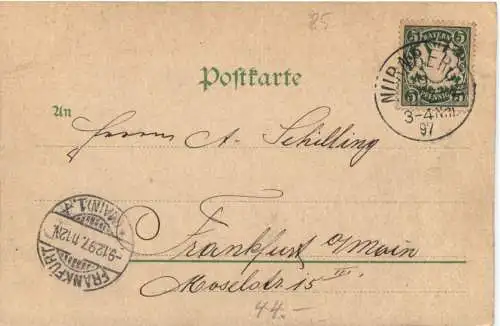 25
BAYERN
5 5
5 PFENNIG 5
NÜRNBERG
3-4 Nm.
97
Postkarte
An
Herrn A. Schilling
Frankfurt a/Main
Moselstr. 15 III
FRANKFURT
(MAIN) 1.
-9.12.97. 11-12N.
44.-